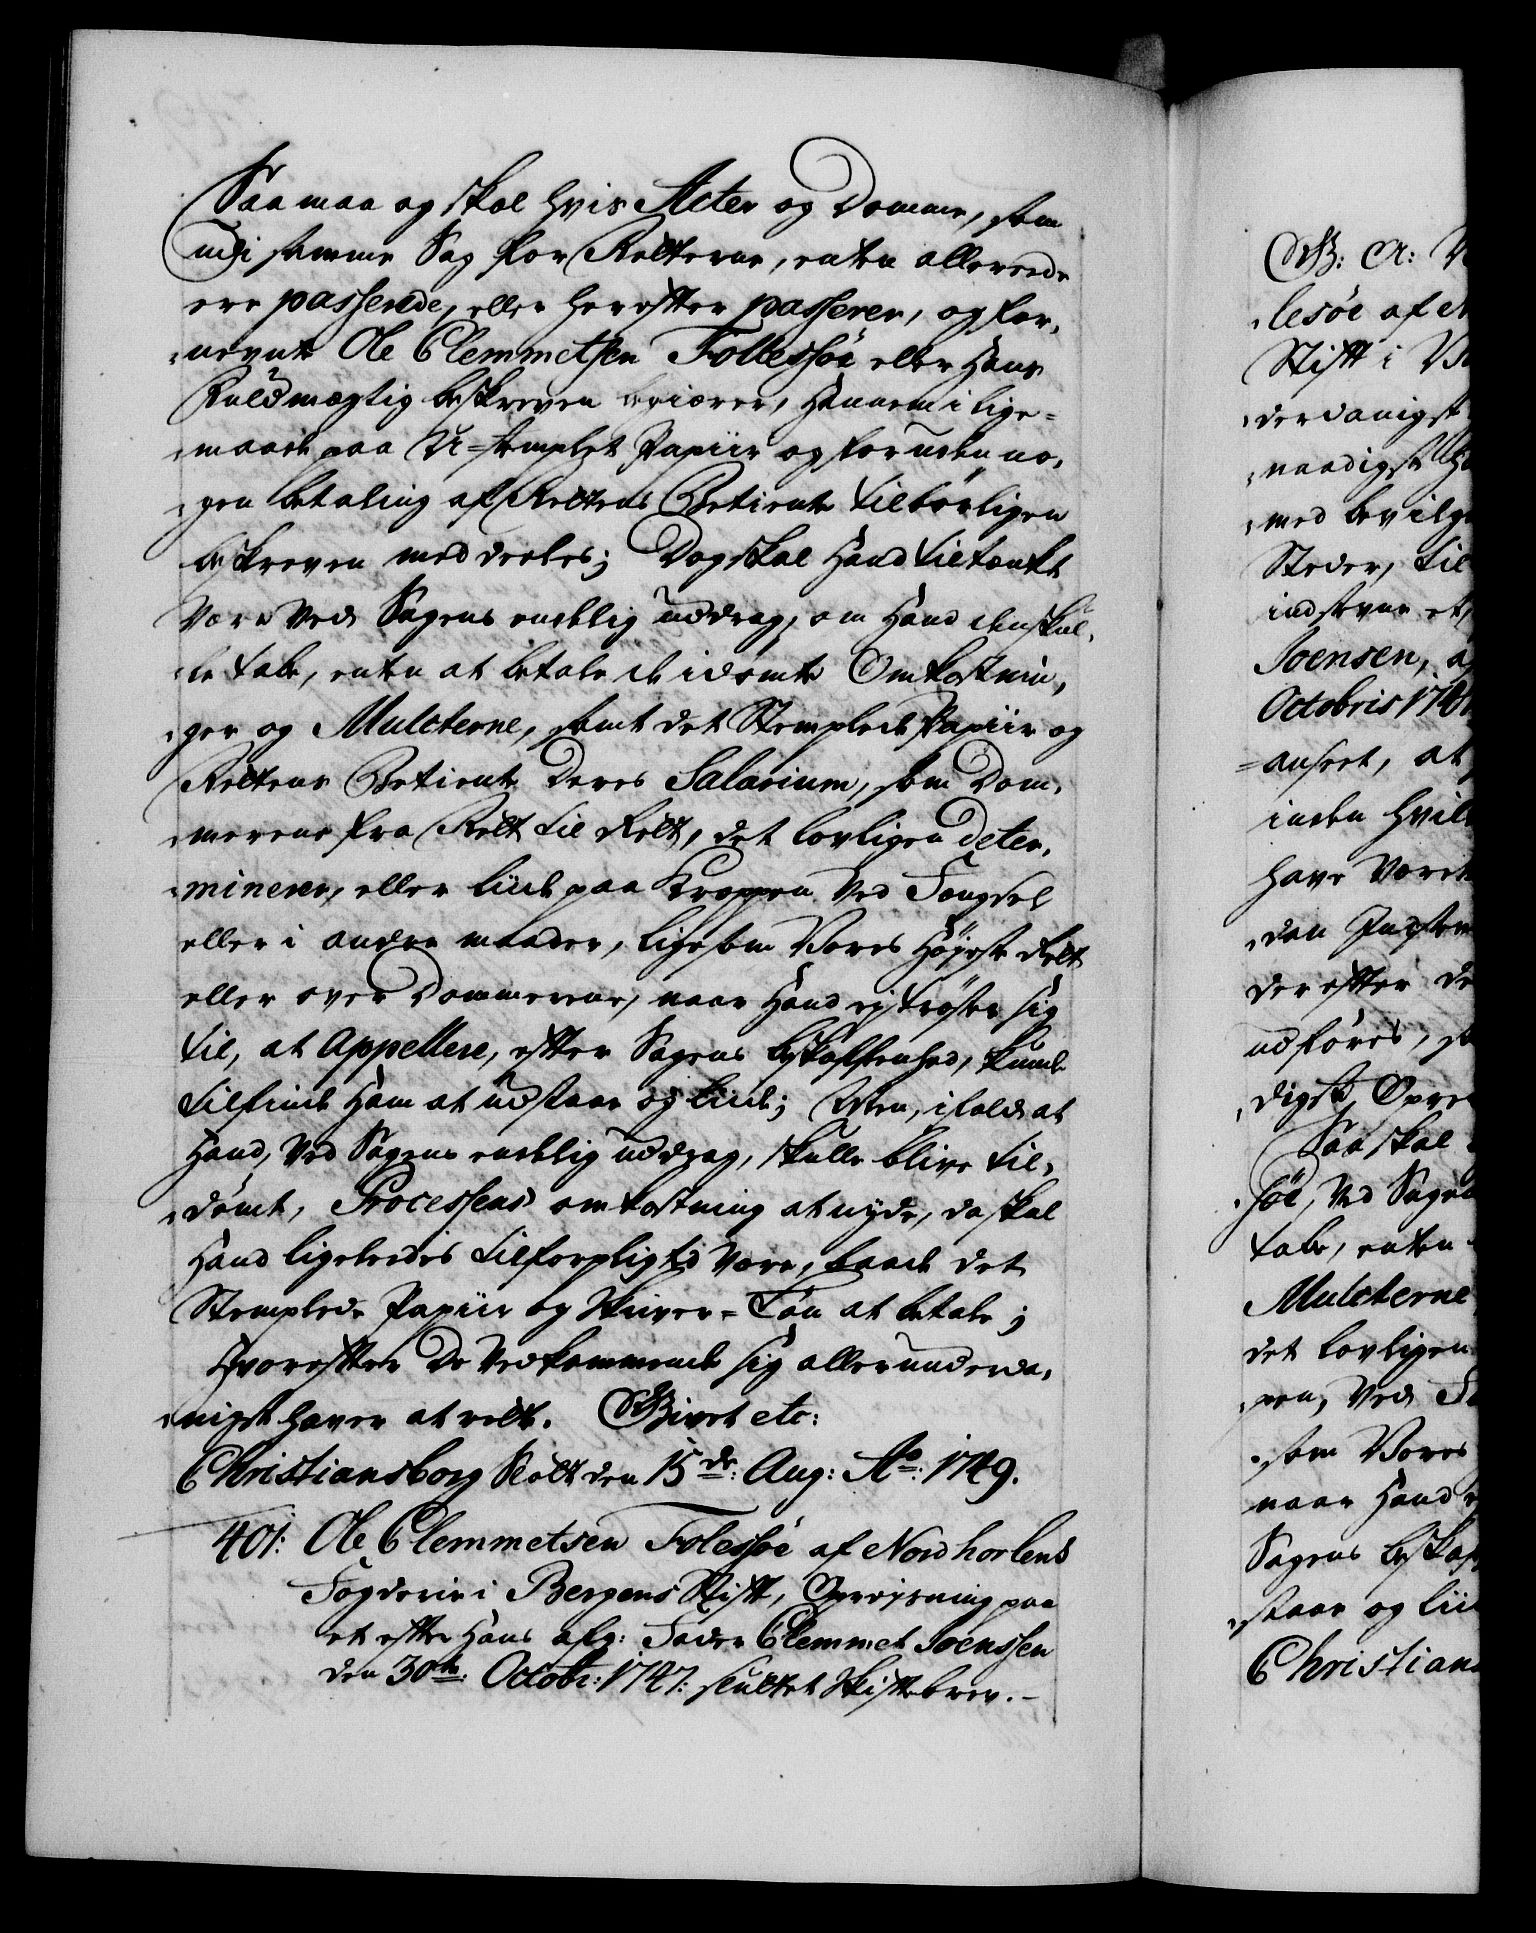 Saa maa og skal hvis Acter og Domme, som
udi samme Sag for Retterne, enten allereede
ere passerede, eller herefter passerer, og for,
„nevnte Ole Clemmetsen Follesøe eller Hans
Fuldmægtig beskreven begiærer, Hannem i lige=
„maade paa U=stemplet Papiir og foruden no,
„gen betaling af Rettens Betiente tilbørligen
beskreven meddeeles; Dog skal Hand tiltænkt
Være Ved Sagens endelig uddrag, om Hand den skul,
„le tabe, enten at betale de idømte Omkostnin,
„ger og Mulcterne, samt det Stemplede Papiir og
Rettens Betiente Deres Salarium, som Dom,
„merene fra Rett til Rett, det lovligen deter,
„minerer, eller liide paa Kroppen Ved Fængsel
eller i andre maader, ligesom Vores Højeste Rett
eller over Dommerene, naar Hand ej trøster sig
til, at Appellere, efter Sagens beskaffenhed, kunde
tilfinde Ham at udstaae og liide; Men, ifald at
Hand, Ved Sagens endelig uddrag, skulle blive til,
„dømt, Processens omkostning at nyde, da skal
Hand ligeleedes tilforpligtd Være, baade det
Stemplede Papiir og Skriver=Løn at betale;
Hvorefter De Vedkommende sig allerunderda,
„nigst haver at rette. Givet etc:
Christiansborg Slott den 15de: Aug: Ao: 1749.
401: Ole Clemmetsen Folesøe af Nordhorlens
Fogderie i Bergens Stift, Opreisning paa
et efter Hans afg: Fader Clemmet Joenssen
den 30te: Octobr: 1747: sluttet Skiftebrev.-
G: A: V
„lesøe af N
Stift i B
„derdanigst
„naadigst
„med bevilge
Steder, til
indstevne et
Joensen, a
Octobris 174
=anseet, at
inden hvil
have Været
„dan
derefter de
udføres, s
„digst Oprei
Saa skal
„søe, Ved Sagen
tabe, enten
Mulcterne
det lovligen
„pen, Ved F
„som Vores
naar Hand e
Sagens beskaf
„staae og lii
Christian